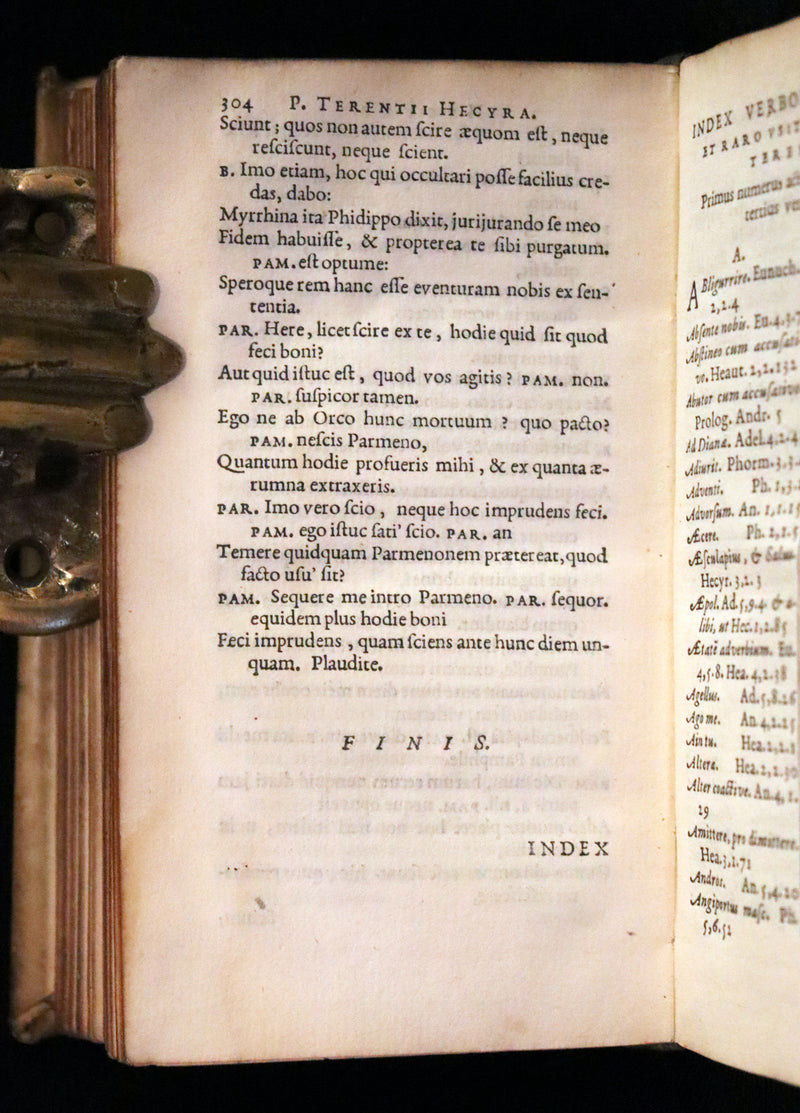 304 P. TERENTII HECYRA.
Sciunt; quos non autem ſcire æquom eſt, neque
reſciſcunt, neque ſcient.
B. Imo etiam, hoc qui occultari poſſe facilius cre-
das, dabo:
Myrrhina ita Phidippo dixit, jurijurando ſe meo
Fidem habuiſſe, & propterea te ſibi purgatum.
PAM. eſt optume:
Speroque rem hanc eſſe eventuram nobis ex ſen-
tentia.
PAR. Here, licet ſcire ex te, hodie quid ſit quod
feci boni?
Aut quid iſtuc eſt, quod vos agitis? PAM. non.
PAR. ſuſpicor tamen.
Ego ne ab Orco hunc mortuum? quo pacto?
PAM. neſcis Parmeno,
Quantum hodie profueris mihi, & ex quanta æ-
rumna extraxeris.
PAR. Imo vero ſcio, neque hoc imprudens feci.
PAM. ego iſtuc ſati' ſcio. PAR. an
Temere quidquam Parmenonem prætereat, quod
facto uſu' ſit?
PAM. Sequere me intro Parmeno. PAR. ſequor.
equidem plus hodie boni
Feci imprudens, quam ſciens ante hunc diem un-
quam. Plaudite.
FINIS.
INDEX
INDEX VERBO
ET RARO
TERE
Primus numerus
tertius
A.
Abligurrire. Eunuch.
2,2.4
Abſente nobis. Eu.4.3.7
Abſtineo cum accuſati
vo. Heaut.
Abutor cum accuſativo
Prolog. Andr. 5
Ad Diana. Adel.4.2.4
Adiurit. Phorm.3.3.
Adventi. Ph.1,3.
Advorſum. An. 1,1.15
Æcere. Ph.
Æſculapius, & Salus
Hecyr.3.2.3
Æpol. Ad.5,9.4 &
libi, ut Hec.1,2.85
Ætate adverbium. Eu.
4,5.8. Hea.4,2.38
Agellus. Ad.5,8.26
Ago me. An 4.2.25
Ain tu. Hea.2.2.
Altere. Hea.2,2.30
Alter coactive. An.4,1.
29
Amittere, pro dimittere.
Hea.3,2.71
Andros. An.5,4.20
Angiportus maſc. Ph.
5,6.52